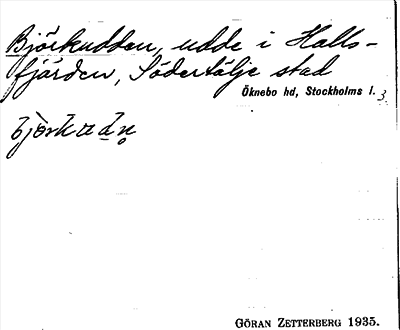 Björkudden, udde i Halls-
fjärden, Södertälje stad
Öknebo hd, Stockholms l. 3.
GÖRAN ZETTERBERG 1935.